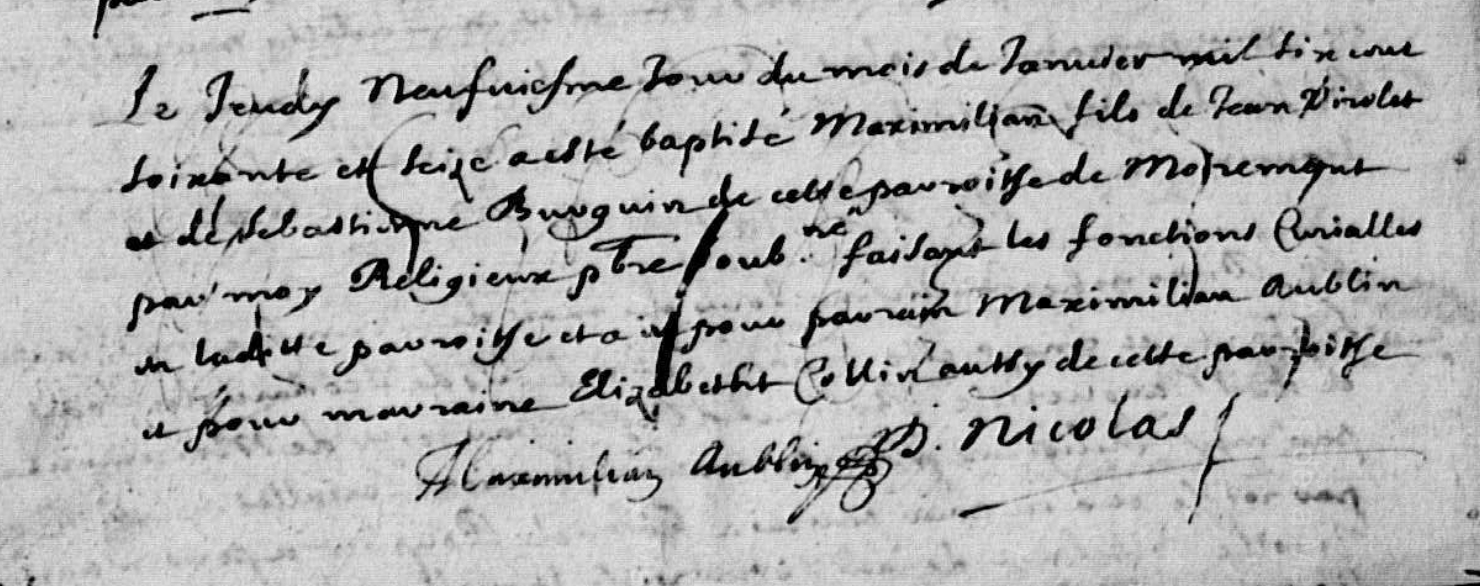 Le Jeudy Neufuiesme Jour du mois de Januier mil six cent
soixante et seize a esté baptisé Maximilian fils de Jean Pirolet
et de sebastienne Burguin de cette parroisse de Moiremont
par moy Religieux pbre soub.né faisant les fonctions Curialles
en laditte parroisse et a eu pour parrain Maximilian Aublin
et pour marraine Elizabetht Collin aussy de cette parroisse
Maximilian Aublin D. Nicolas